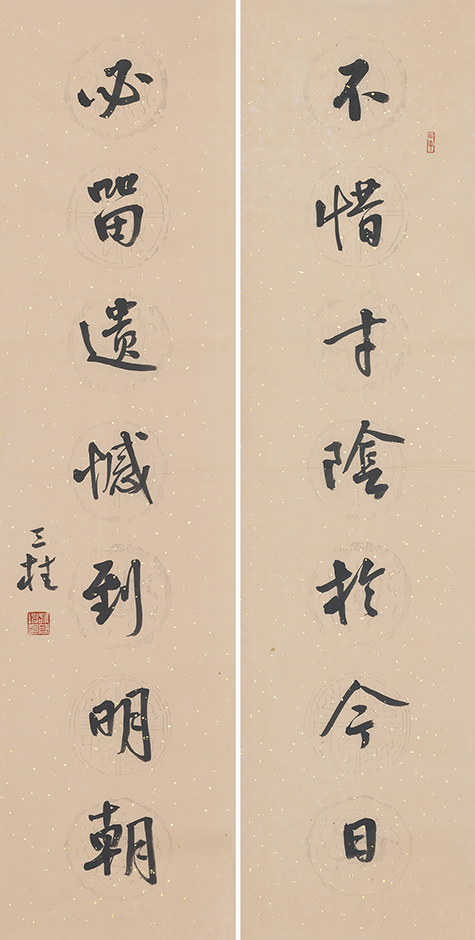 不惜寸陰於今日
必留遺憾到明朝
三桂